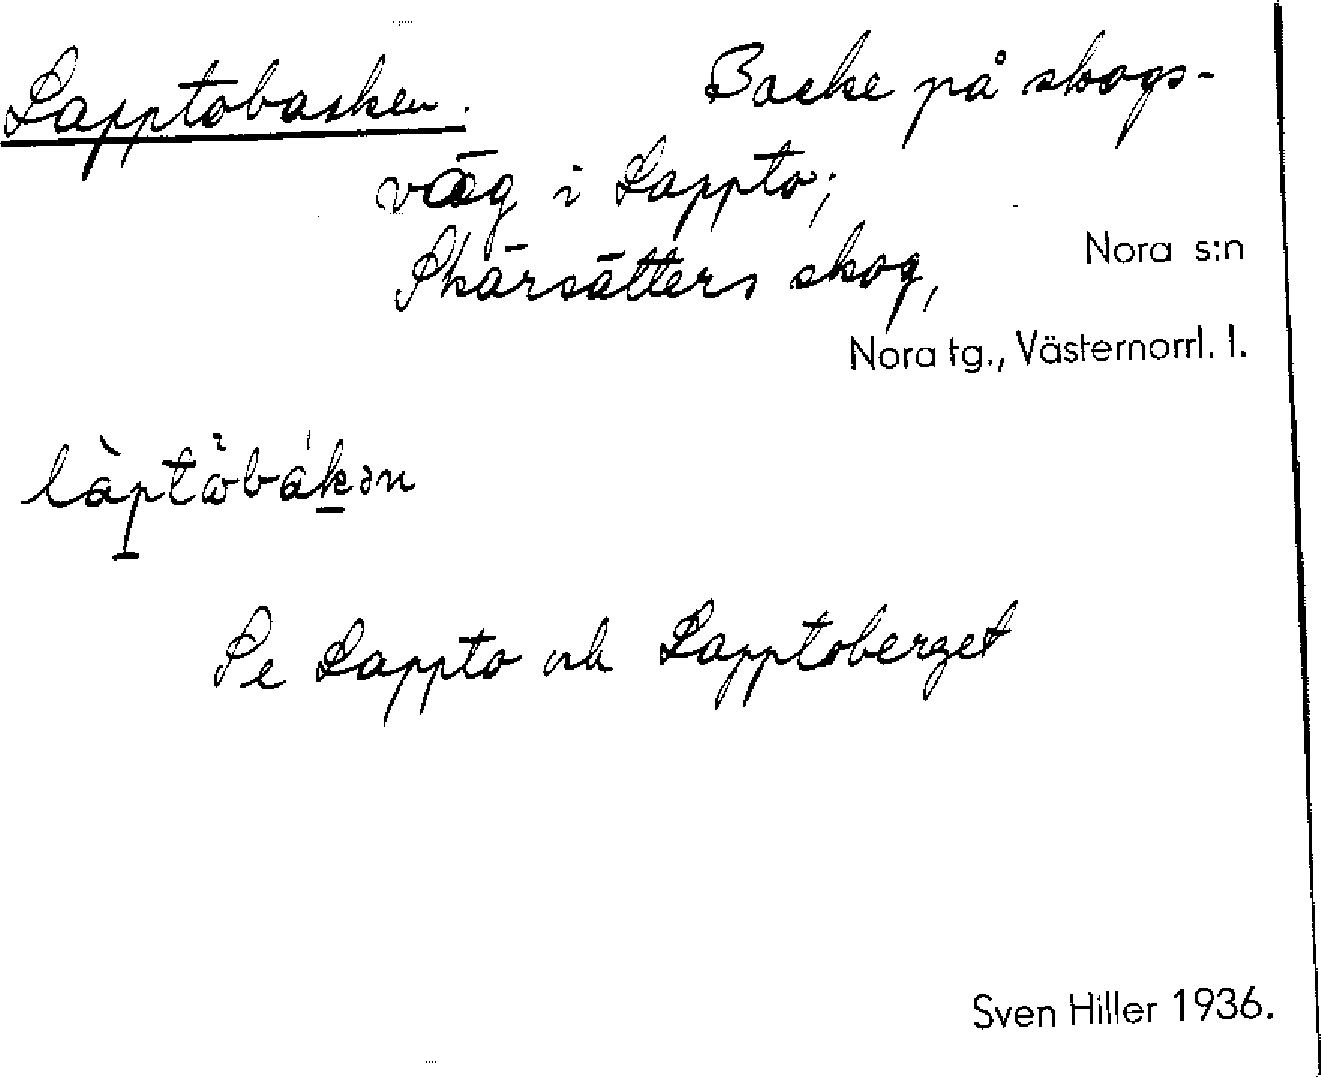 Lapptobacken. Backe på skogs-
väg i Lappto;
Skärsätters skog, Nora s:n
Nora tg., Västernorrl. l.
làptὼbákən
Se Lappto och Lapptoberget
Sven Hiller 1936.